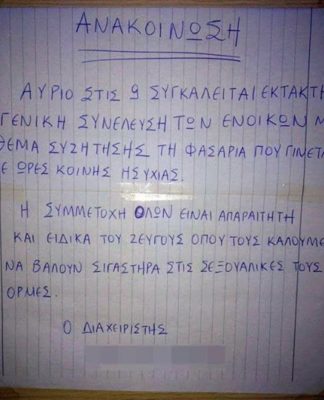 ΑΝΑΚΟΙΝΩΣΗ
ΑΥΡΙΟ ΣΤΙΣ 9 ΣΥΓΚΑΛΕΙΤΑΙ ΕΚΤΑΚΤΗ
ΓΕΝΙΚΗ ΣΥΝΕΛΕΥΣΗ ΤΩΝ ΕΝΟΙΚΩΝ Μ
ΘΕΜΑ ΣΥΖΗΤΗΣΗΣ ΤΗ ΦΑΣΑΡΙΑ ΠΟΥ ΓΙΝΕΤΑ
Ε ΩΡΕΣ ΚΟΙΝΗΣ ΗΣΥΧΙΑΣ.
Η ΣΥΜΜΕΤΟΧΗ ΟΛΩΝ ΕΙΝΑΙ ΑΠΑΡΑΙΤΗΤΗ
ΚΑΙ ΕΙΔΙΚΑ ΤΟΥ ΖΕΥΓΟΥΣ ΟΠΟΥ ΤΟΥΣ ΚΑΛΟΥΜΕ
ΝΑ ΒΑΛΟΥΝ ΣΙΓΑΣΤΗΡΑ ΣΤΙΣ ΣΕΞΟΥΑΛΙΚΕΣ ΤΟΥΣ
ΟΡΜΕΣ.
Ο ΔΙΑΧΕΙΡΙΣΤΗΣ